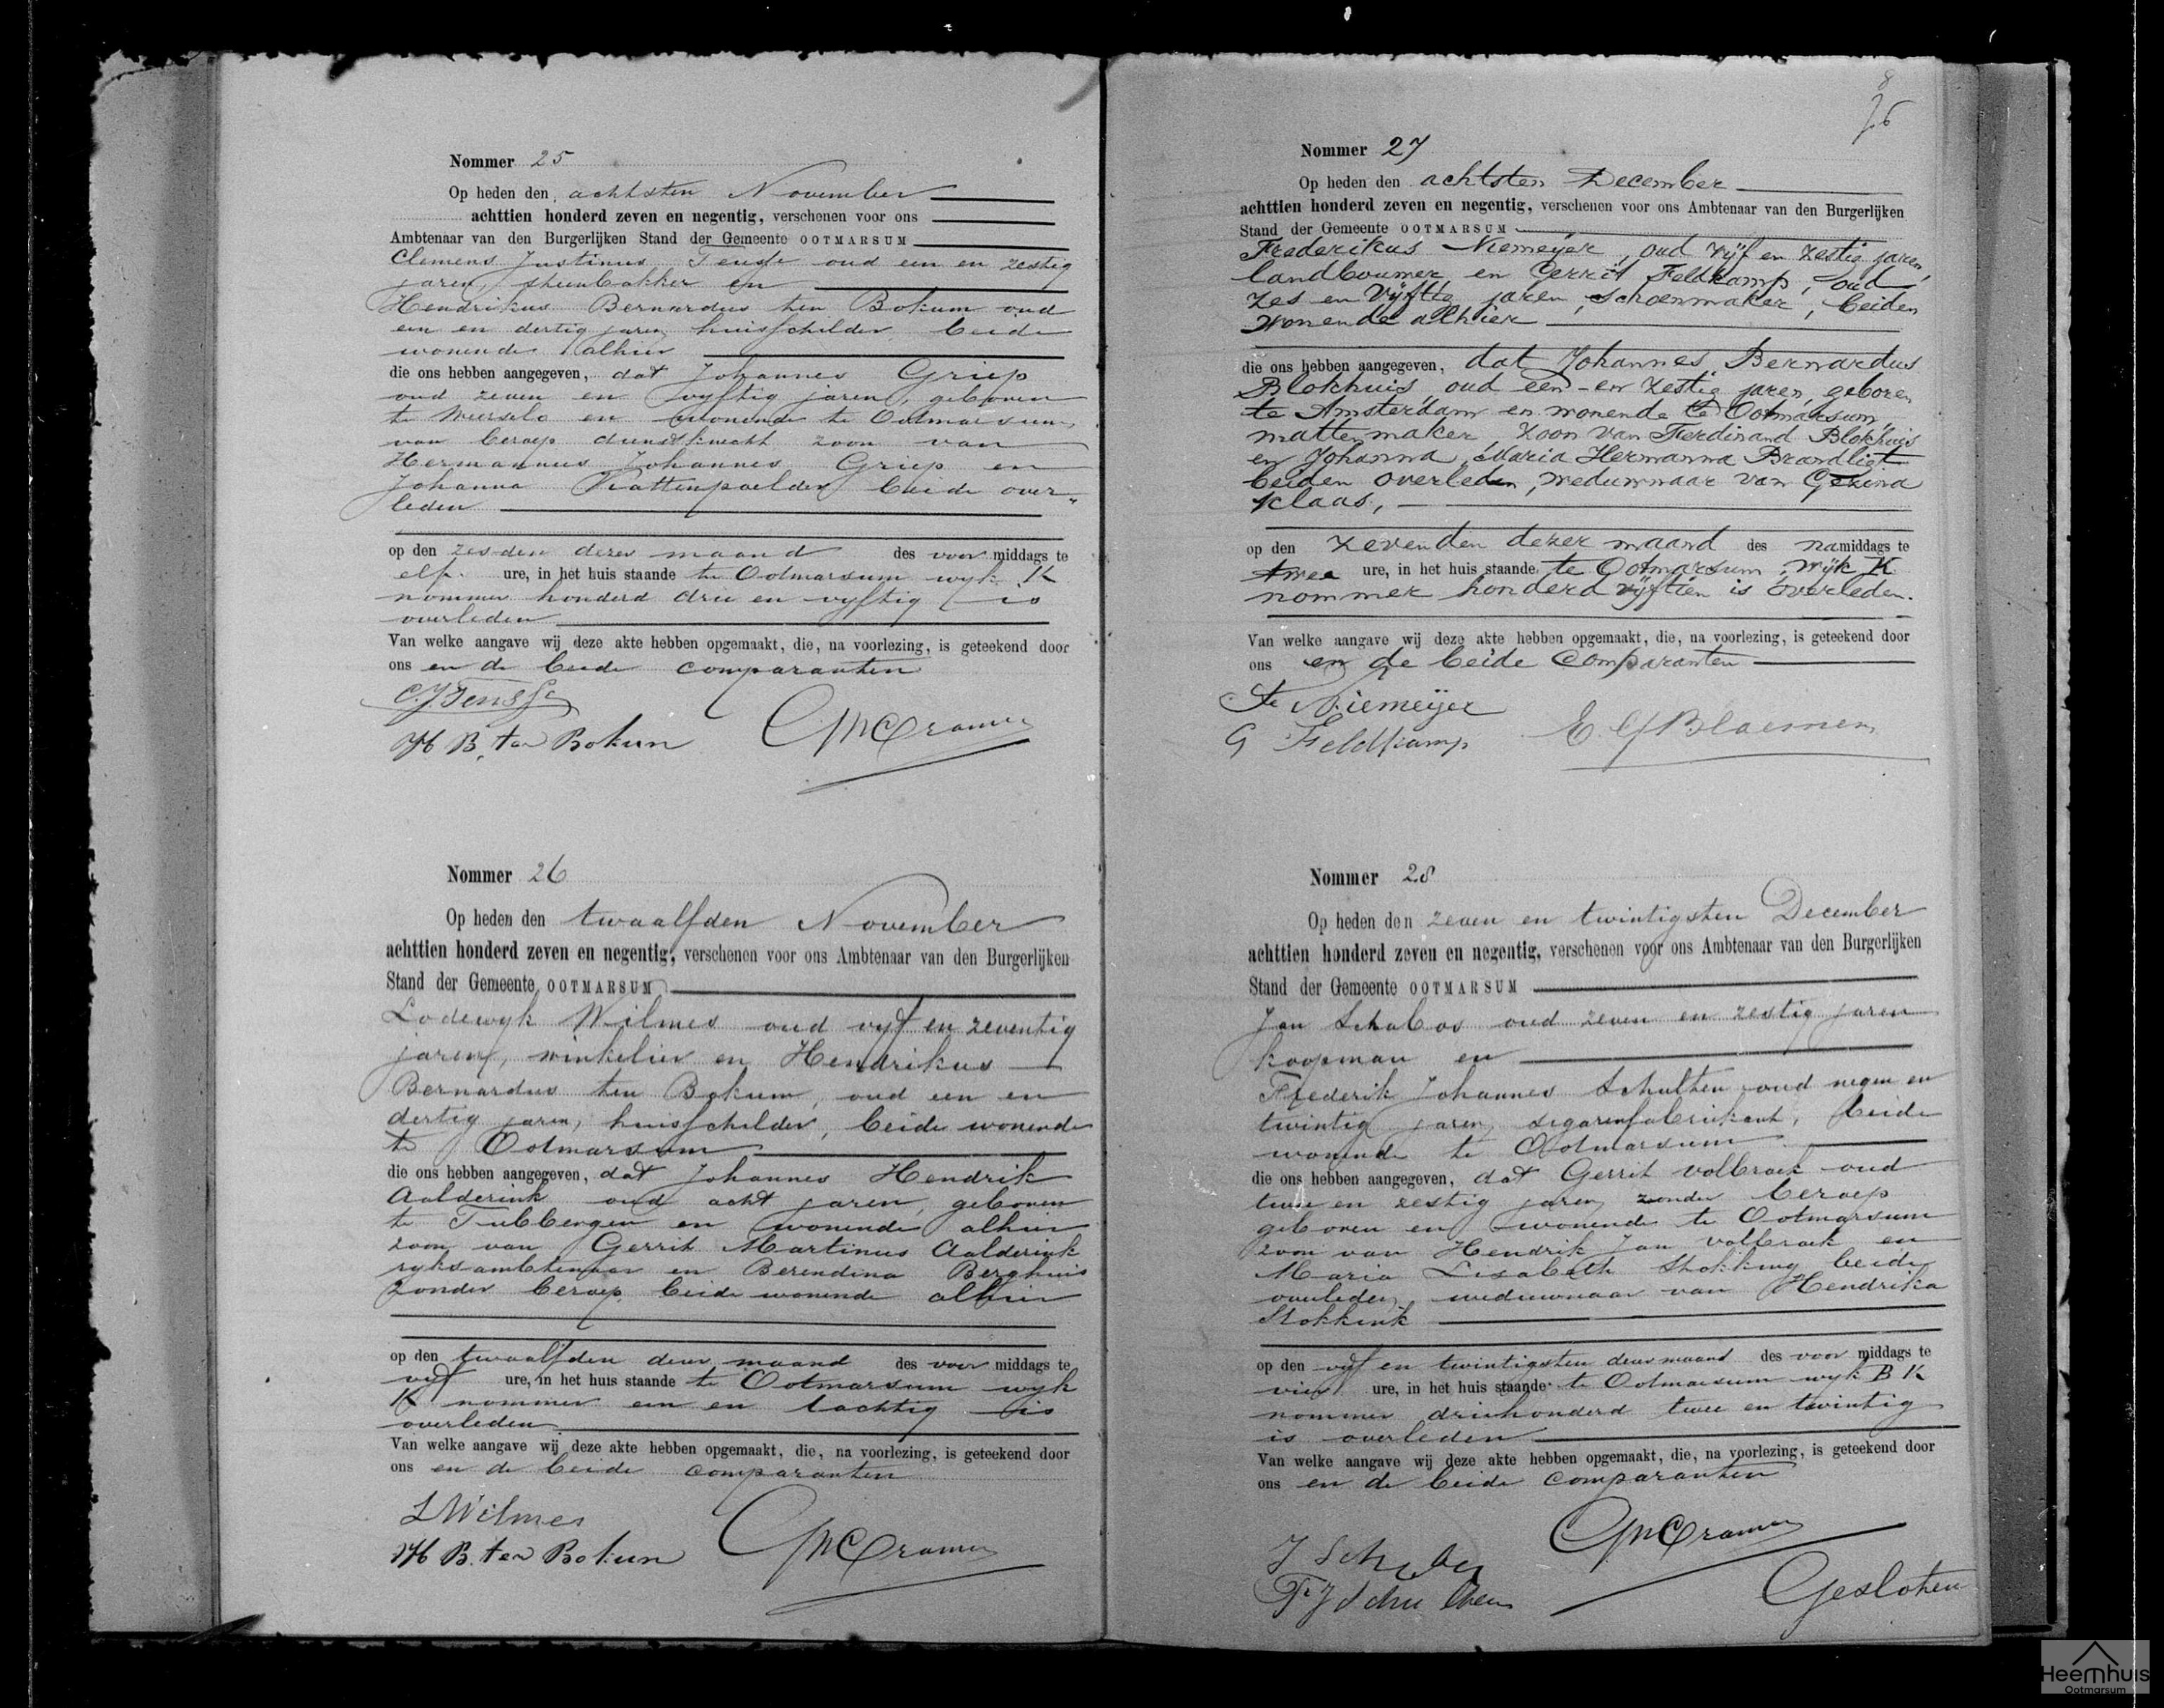 Nommer 25
Op heden den achtsten November
achttien honderd zeven en negentig, verschenen voor ons
Ambtenaar van den Burgerlijken Stand der Gemeente OOTMARSUM
Clemens Justinus oud een en zestig
jaren, en
Hendrikus Bernardus ten Bokum oud
een en dertig jaren huisschilder, beide
wonende alhier
die ons hebben aangegeven, dat Johannes Griep
oud zeven en vyftig jaren, geboren
te Weerselo en wonende te Ootmarsum,
van beroep dienstknecht zoon van
Hermannus Johannes Griep en
Johanna beide over-
leden
op den zesden dezer maand des voor middags te
elf ure, in het huis staande te Ootmarsum wyk K
nommer honderd drie en vyftig is
overleden
Van welke aangave wij deze akte hebben opgemaakt, die, na voorlezing, is geteekend door
ons en de beide comparanten
H B. ten Bokum
Nommer 26
Op heden den twaalfden November
achttien honderd zeven en negentig, verschenen voor ons Ambtenaar van den Burgerlijken
Stand der Gemeente OOTMARSUM
Lodewyk Wilmes oud vyf en zeventig
jaren, winkelier en Hendrikus
Bernardus ten Bokum, oud een en
dertig jaren, huisschilder, beide wonende
te Ootmarsum
die ons hebben aangegeven, dat Johannes Hendrik
Aalderink oud acht jaren, geboren
te Tubbergen en wonende alhier
zoon van Gerrit Martinus Aalderink
ryksambtenaar en Berendina Berghuis
zonder beroep, beide wonende alhier
op den twaalfden dezer maand des voor middags te
vyf ure, in het huis staande te Ootmarsum wyk
K nommer een en tachtig is
overleden
Van welke aangave wij deze akte hebben opgemaakt, die, na voorlezing, is geteekend door
ons en de beide comparanten
L Wilmes
H B. ten Bokum
Nommer 27
Op heden den achtsten December
achttien honderd zeven en negentig, verschenen voor ons Ambtenaar van den Burgerlijken
Stand der Gemeente OOTMARSUM
Frederikus Niemeijer, oud vijf en zestig jaren,
landbouwer en Gerrit Feldkamp, oud
zes en vijftig jaren, schoenmaker, beiden
wonende alhier
die ons hebben aangegeven, dat Johannes Bernardus
Blokhuis, oud een en zestig jaren, geboren
te Amsterdam en wonende te Ootmarsum,
mattenmaker, zoon van Ferdinand Blokhuis
en Johanna Maria Hermanna Brandligt
beiden overleden, weduwnaar van Gezina
Klaas,
op den zevenden dezer maand des namiddags te
twee ure, in het huis staande te Ootmarsum, wijk K
nommer honderd vijftien is overleden.
Van welke aangave wij deze akte hebben opgemaakt, die, na voorlezing, is geteekend door
ons en de beide Comparanten
Niemeijer
G Feldkamp
Nommer 28
Op heden den zeven en twintigsten December
achttien honderd zeven en negentig, verschenen voor ons Ambtenaar van den Burgerlijken
Stand der Gemeente OOTMARSUM
Jan Schabos oud zeven en zestig jaren
koopman en
Frederik Johannes Schulten oud negen en
twintig jaren, sigarenfabrikant, beide
wonende te Ootmarsum
die ons hebben aangegeven, dat Gerrit Volbroek oud
twee en zestig jaren, zonder beroep
geboren en wonende te Ootmarsum
zoon van Hendrik Jan Volbroek en
Maria Lisabeth Stokking beide
overleden, weduwnaar van Hendrika
Stokkink
op den vyf en twintigsten dezer maand des voor middags te
vier ure, in het huis staande te Ootmarsum wyk B K
nommer driehonderd twee en twintig
is overleden
Van welke aangave wij deze akte hebben opgemaakt, die, na voorlezing, is geteekend door
ons en de beide comparanten
Gesloten
Heemhuis
Ootmarsum